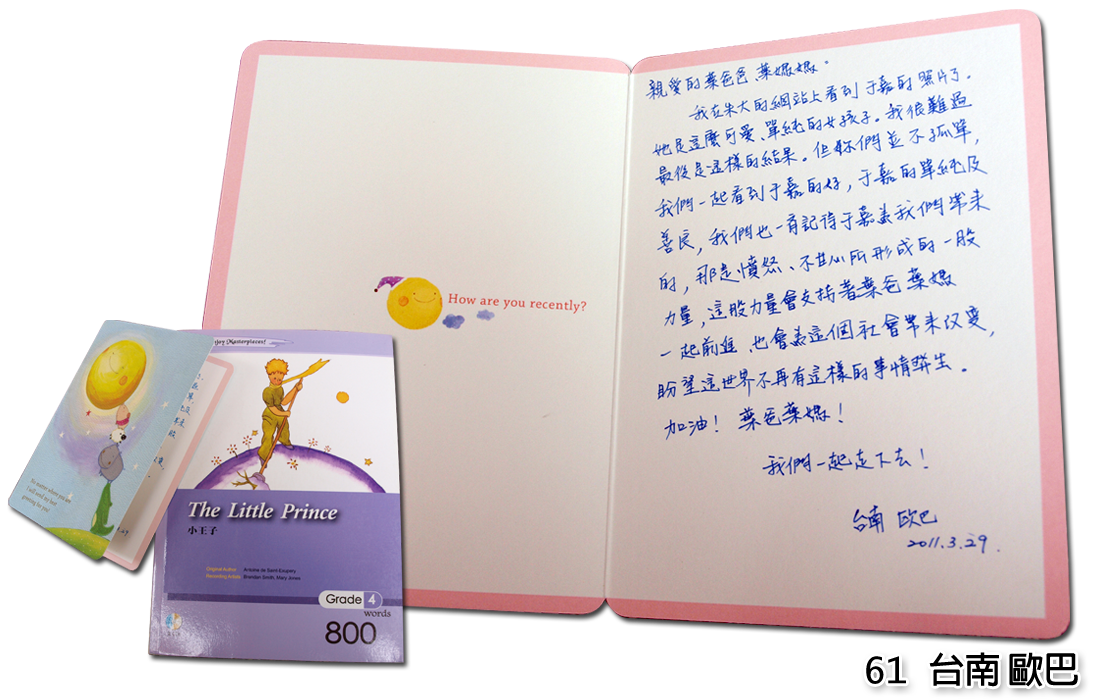 親愛的葉爸爸、葉媽媽：
我在朱大的網站上看到于嘉的照片了。
她是這麼可愛、單純的女孩子。我很難過
最後是這樣的結果。但妳們並不孤單，
我們一起看到于嘉的好，于嘉的單純及
善良，我們也一直記得于嘉為我們帶來
的，那是憤怒、不甘心所形成的一股
力量，這股力量會支持著葉爸葉媽
一起前進、也會為這個社會帶來改變，
盼望這世界不再有這樣的事情發生。
加油！葉爸葉媽！
我們一起走下去！
台南 歐巴
2011.3.29.
How are you recently?
No matter where you are
I will send my best
greeting for you!
Enjoy Masterpieces!
The Little Prince
小王子
Original Author Antoine de Saint-Exupery
Recording Artists Brendan Smith, Mary Jones
Grade 4
words
800
61 台南 歐巴